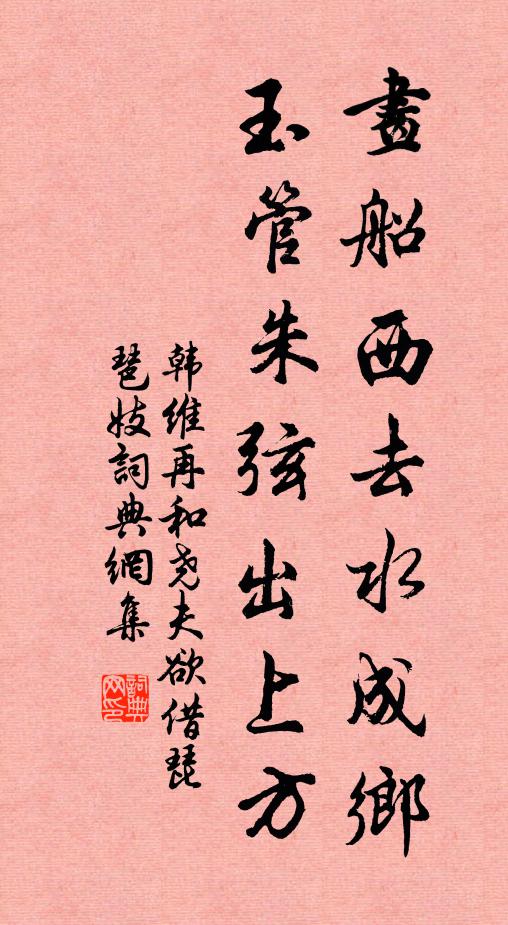 畫船西去水成鄉
玉管朱弦出上方
韩維再和尧夫欲借琵
琶妓詞典網集
詞典
网印